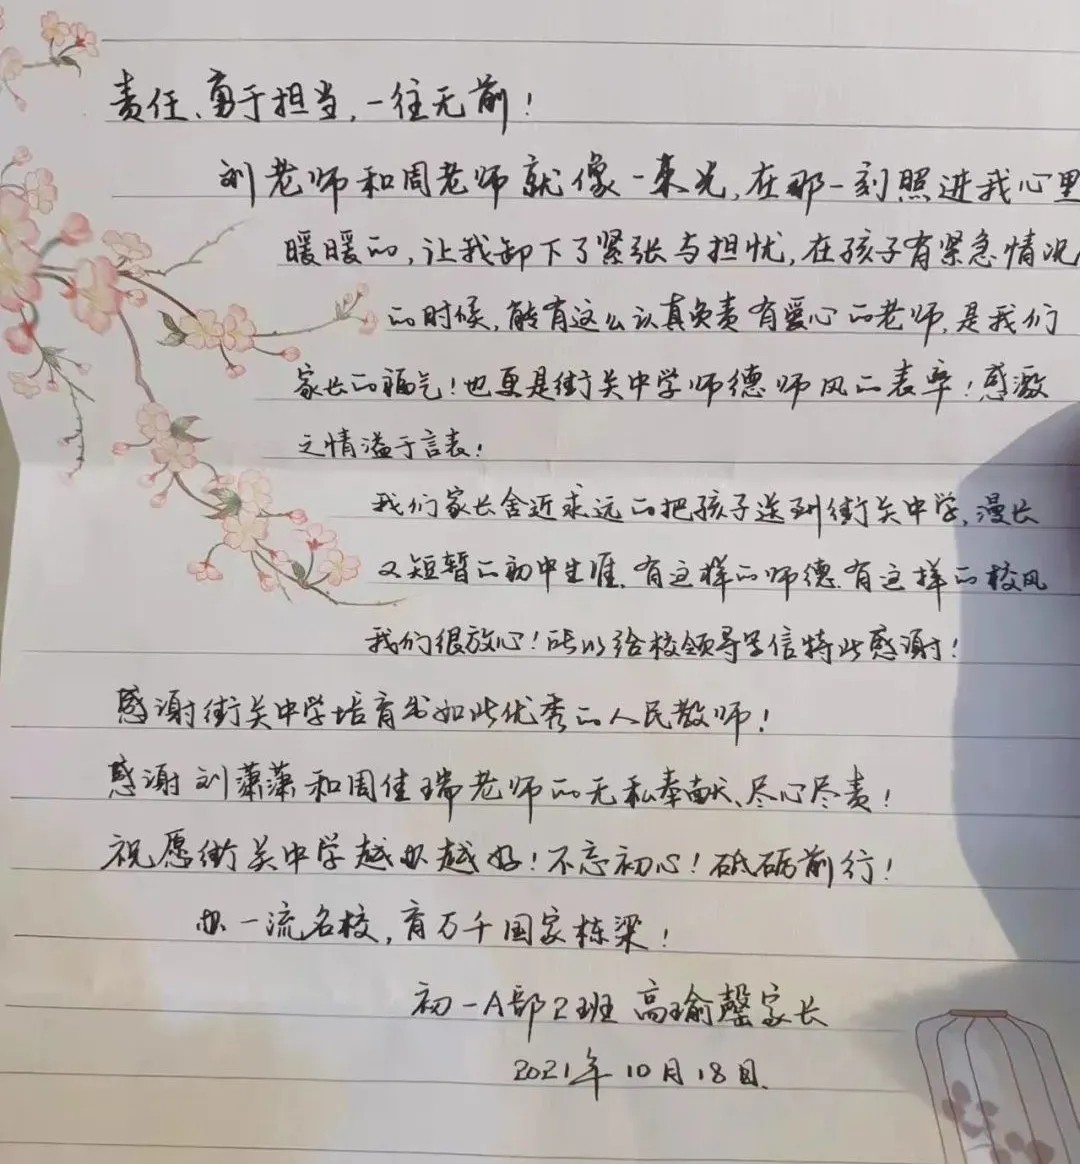 责任、勇于担当，一往无前！
刘老师和周老师就像一束光，在那一刻照进我心里
暖暖的，让我卸下了紧张与担忧，在孩子有紧急情况
的时候，能有这么认真负责有爱心的老师，是我们
家长的福气！也更是街关中学师德师风的表率！感激
之情溢于言表！
我们家长舍近求远的把孩子送到街关中学，漫长
又短暂的初中生涯，有这样的师德，有这样的校风
我们很放心！所以给校领导写信特此感谢！
感谢街关中学培育出如此优秀的人民教师！
感谢刘潇潇和周佳瑞老师的无私奉献、尽心尽责！
祝愿街关中学越办越好！不忘初心！砥砺前行！
办一流名校，育万千国家栋梁！
初一A部2班 高瑜馨家长
2021年10月18日.